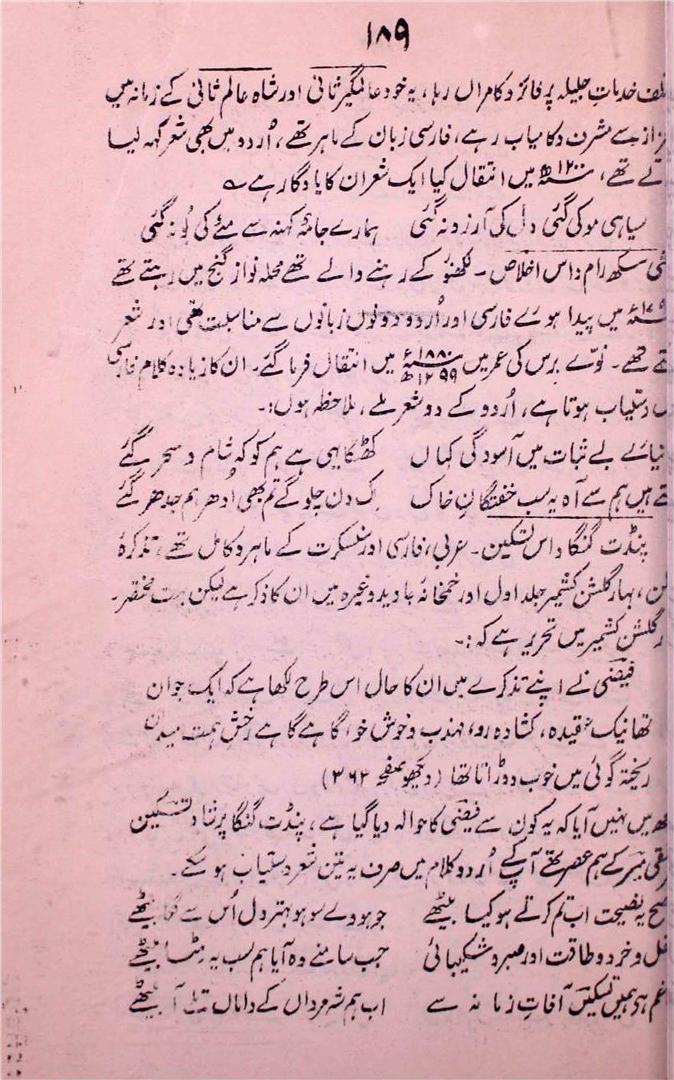 ۱۸۹
خدماتِ جلیلہ پر فائز و کامراں رہا، یہ خود عالمگیر ثانی اور شاہ عالم ثانی کے زمانہ میں
سے مشرف و کامیاب رہے، فارسی زبان کے ماہر تھے، اُردو میں بھی شعر کہہ لیا
تے تھے، ۱۲۰۰ھ میں انتقال کیا ایک شعر ان کا یادگار ہے ؎
سیاہی مو کی گئی دل کی آرزو نہ گئی ہمارے جامۂ کہنہ سے مئے کی بُو نہ گئی
شی سکھ رام داس اخلاص۔ لکھنؤ کے رہنے والے تھے محلہ نواز گنج میں رہتے تھے
میں پیدا ہوئے فارسی اور اُردو دونوں زبانوں سے مناسبت تھی اور شعر
تے تھے۔ نوّے برس کی عمر میں ۱۸۸۰ء ۱۲۹۹ھ میں انتقال فرما گئے۔ ان کا زیادہ کلام فارسی
دستیاب ہوتا ہے، اُردو کے دو شعر ملے، ملاحظہ ہوں:۔
نیائے بے ثبات میں آسودگی کہاں کھٹکا یہی ہے ہم کو کہ شام و سحر گئے
تے ہیں ہم سے آہ یہ سب خفتگانِ خاک اک دن چلو گے تم بھی اُدھر ہم جدھر گئے
پنڈت گنگا داس تسکین۔ عربی، فارسی اور سنسکرت کے ماہر و کامل تھے، تذکرۂ
، بہار گلشن کشمیر جلد اول اور خمخانۂ جاوید وغیرہ میں ان کا ذکر ہے لیکن بہت مختصر۔
گلشن کشمیر میں تحریر ہے کہ:۔
فیضی نے اپنے تذکرے میں ان کا حال اس طرح لکھا ہے کہ ایک جوان
تھا نیک عقیدہ، کشادہ رو، مہذب و خوش خو، گاہے گاہے رخش ہمت میدان
ریختہ گوئی میں خوب دوڑاتا تھا (دیکھو صفحہ ۳۶۲)
میں نہیں آیا کہ یہ کون سے فیضی کا حوالہ دیا گیا ہے، پنڈت گنگا پرشاد تسکین
تقی میر کے ہم عصر تھے آپ کے اُردو کلام میں صرف یہ تین شعر دستیاب ہو سکے۔
صح یہ نصیحت اب تم کرتے ہو کیا بیٹھے جو ہووے سو ہو بہتر دل اُس سے لگا بیٹھے
و خرد و طاقت اور صبر و شکیبائی جب سامنے وہ آیا ہم سب یہ لٹا بیٹھے
غم ہو ہمیں تسکیں آفاتِ زمانہ سے اب ہم شہِ مرداں کے داماں تلے آ بیٹھے